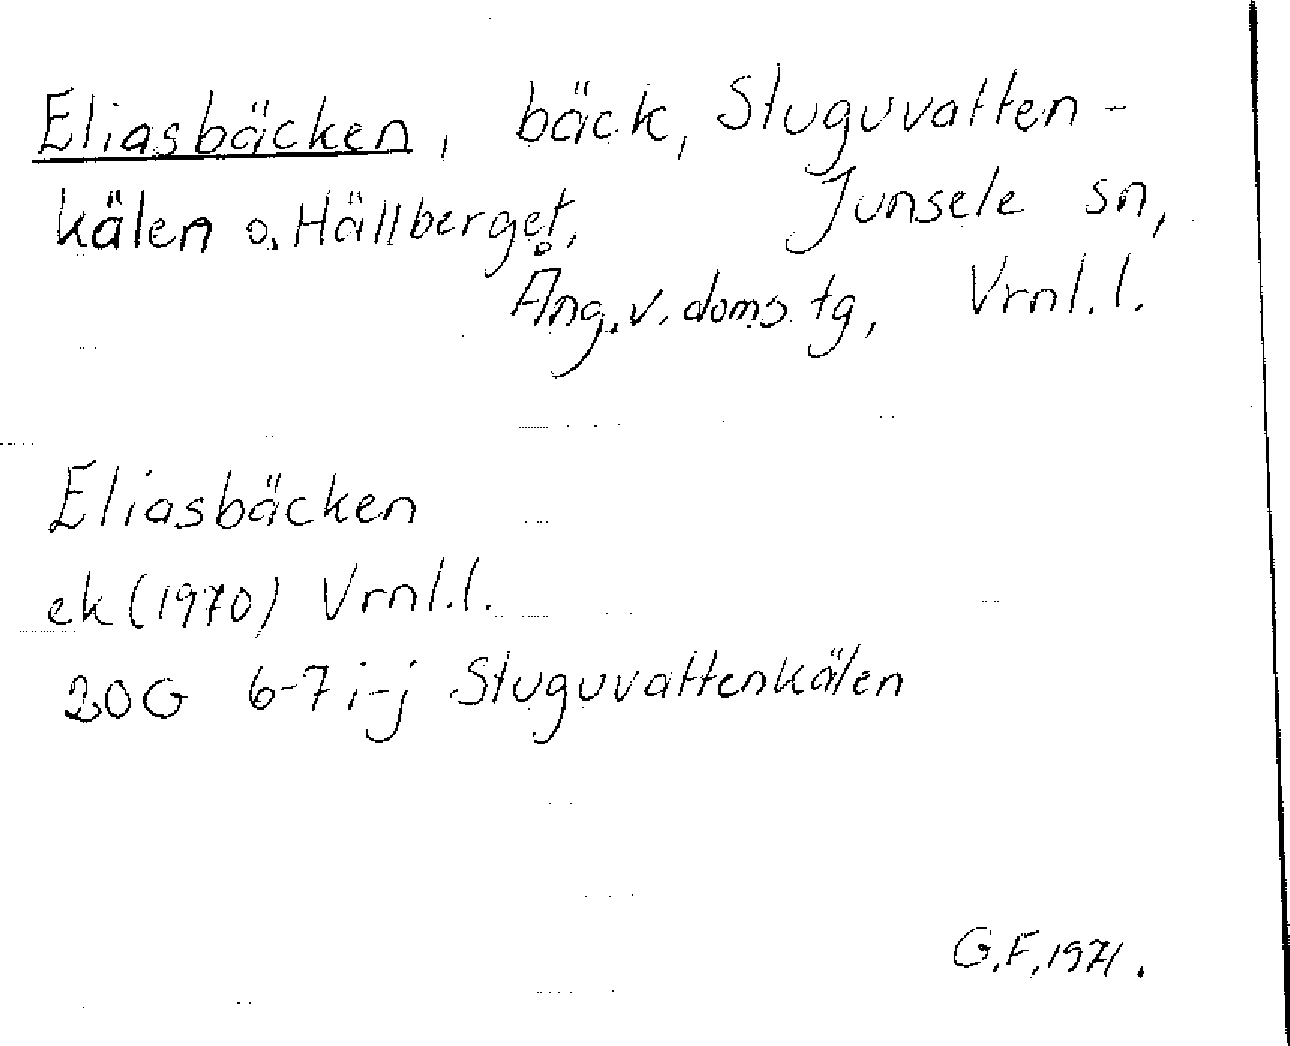 Eliasbäcken, bäck, Stuguvatten-
kälen o. Hällberget, Junsele sn,
Ång.v. doms. tg, Vrnl.l.
Eliasbäcken
ek (1970) Vrnl.l.
20G 6-7 i-j Stuguvattenkälen
G.F, 1971.